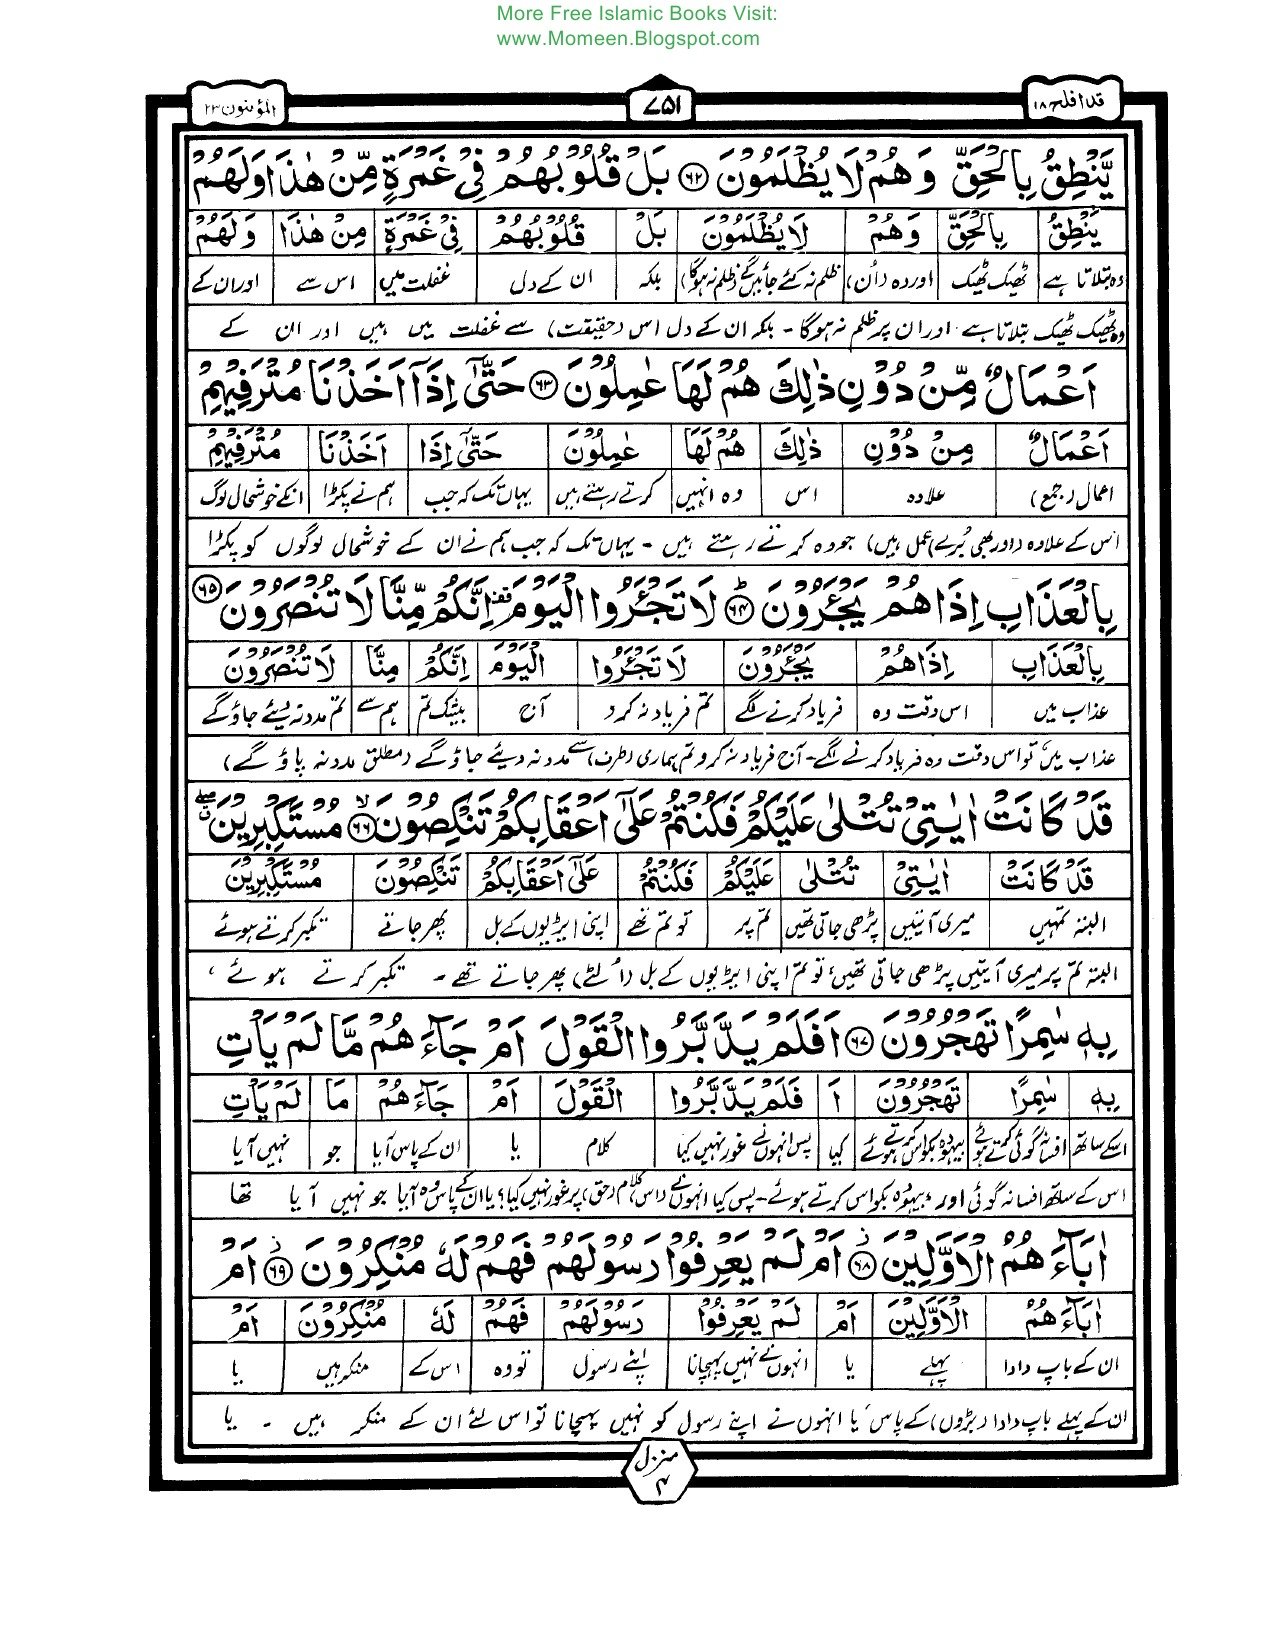 More Free Islamic Books Visit:
www.Momeen.Blogspot.com
قد افلح ۱۸
۷۵۱
المؤمنون ۲۳
يَّنْطِقُ بِالْحَقِّ وَهُمْ لَا يُظْلَمُوْنَ ۶۲ بَلْ قُلُوْبُهُمْ فِيْ غَمْرَةٍ مِّنْ هٰذَا وَلَهُمْ
يَنْطِقُ بِالْحَقِّ وَهُمْ لَا يُظْلَمُوْنَ بَلْ قُلُوْبُهُمْ فِيْ غَمْرَةٍ مِنْ هٰذَا وَلَهُمْ
وہ بتلاتا ہے ٹھیک ٹھیک اور وہ (ان) ظلم نہ کئے جائیں گے (ظلم نہ ہوگا) بلکہ ان کے دل غفلت میں اس سے اور ان کے
وہ ٹھیک ٹھیک بتلاتا ہے اور ان پر ظلم نہ ہوگا - بلکہ ان کے دل اس (حقیقت) سے غفلت میں ہیں اور ان کے
اَعْمَالٌ مِّنْ دُوْنِ ذٰلِكَ هُمْ لَهَا عٰمِلُوْنَ ۶۳ حَتّٰٓى اِذَآ اَخَذْنَا مُتْرَفِيْهِمْ
اَعْمَالٌ مِنْ دُوْنِ ذٰلِكَ هُمْ لَهَا عٰمِلُوْنَ حَتّٰٓى اِذَا اَخَذْنَا مُتْرَفِيْهِمْ
اعمال (جمع) علاوہ اس وہ انہیں کرتے رہتے ہیں یہاں تک کہ جب ہم نے پکڑا انکے خوشحال لوگ
اس کے علاوہ (اور بھی بُرے) عمل ہیں جو وہ کرتے رہتے ہیں - یہاں تک کہ جب ہم نے ان کے خوشحال لوگوں کو پکڑا
بِالْعَذَابِ اِذَا هُمْ يَجْـَٔرُوْنَ ۶۴ لَا تَجْـَٔرُوا الْيَوْمَ اِنَّكُمْ مِّنَّا لَا تُنْصَرُوْنَ ۶۵
بِالْعَذَابِ اِذَا هُمْ يَجْـَٔرُوْنَ لَا تَجْـَٔرُوا الْيَوْمَ اِنَّكُمْ مِنَّا لَا تُنْصَرُوْنَ
عذاب میں اس وقت وہ فریاد کرنے لگے تم فریاد نہ کرو آج بیشک تم ہم سے تم مدد نہ دیئے جاؤ گے
عذاب میں تو اس وقت وہ فریاد کرنے لگے - آج فریاد نہ کرو تم ہماری (طرف) سے مدد نہ دیئے جاؤ گے (مطلق مدد نہ پاؤ گے)
قَدْ كَانَتْ اٰيٰتِيْ تُتْلٰى عَلَيْكُمْ فَكُنْتُمْ عَلٰٓى اَعْقَابِكُمْ تَنْكِصُوْنَ ۶۶ مُسْتَكْبِرِيْنَ
قَدْ كَانَتْ اٰيٰتِيْ تُتْلٰى عَلَيْكُمْ فَكُنْتُمْ عَلٰٓى اَعْقَابِكُمْ تَنْكِصُوْنَ مُسْتَكْبِرِيْنَ
البتہ تمہیں میری آیتیں پڑھی جاتی تھیں تم پر تو تم تھے اپنی ایڑیوں کے بل پھر جاتے تکبر کرتے ہوئے
البتہ تم پر میری آیتیں پڑھی جاتی تھیں، تو تم اپنی ایڑیوں کے بل (الٹے) پھر جاتے تھے - تکبر کرتے ہوئے،
بِهٖ سٰمِرًا تَهْجُرُوْنَ ۶۷ اَفَلَمْ يَدَّبَّرُوا الْقَوْلَ اَمْ جَآءَهُمْ مَّا لَمْ يَاْتِ
بِهٖ سٰمِرًا تَهْجُرُوْنَ اَ فَلَمْ يَدَّبَّرُوا الْقَوْلَ اَمْ جَآءَهُمْ مَا لَمْ يَاْتِ
اسکے ساتھ افسانہ گوئی کرتے ہوئے بیہودہ بکواس کرتے ہوئے کیا پس انہوں نے غور نہیں کیا کلام یا ان کے پاس آیا جو نہیں آیا
اس کے ساتھ افسانہ گوئی اور بیہودہ بکواس کرتے ہوئے - پس کیا انہوں نے (اس) کلام (حق) پر غور نہیں کیا؟ یا ان کے پاس وہ آیا جو نہیں آیا تھا
اٰبَآءَهُمُ الْاَوَّلِيْنَ ۶۸ اَمْ لَمْ يَعْرِفُوْا رَسُوْلَهُمْ فَهُمْ لَهٗ مُنْكِرُوْنَ ۶۹ اَمْ
اٰبَآءَهُمُ الْاَوَّلِيْنَ اَمْ لَمْ يَعْرِفُوْا رَسُوْلَهُمْ فَهُمْ لَهٗ مُنْكِرُوْنَ اَمْ
ان کے باپ دادا پہلے یا انہوں نے نہیں پہچانا اپنے رسول تو وہ اس کے منکر ہیں یا
ان کے پہلے باپ دادا (بڑوں) کے پاس، یا انہوں نے اپنے رسول کو نہیں پہچانا تو اس لئے ان کے منکر ہیں - یا
منزل ۴